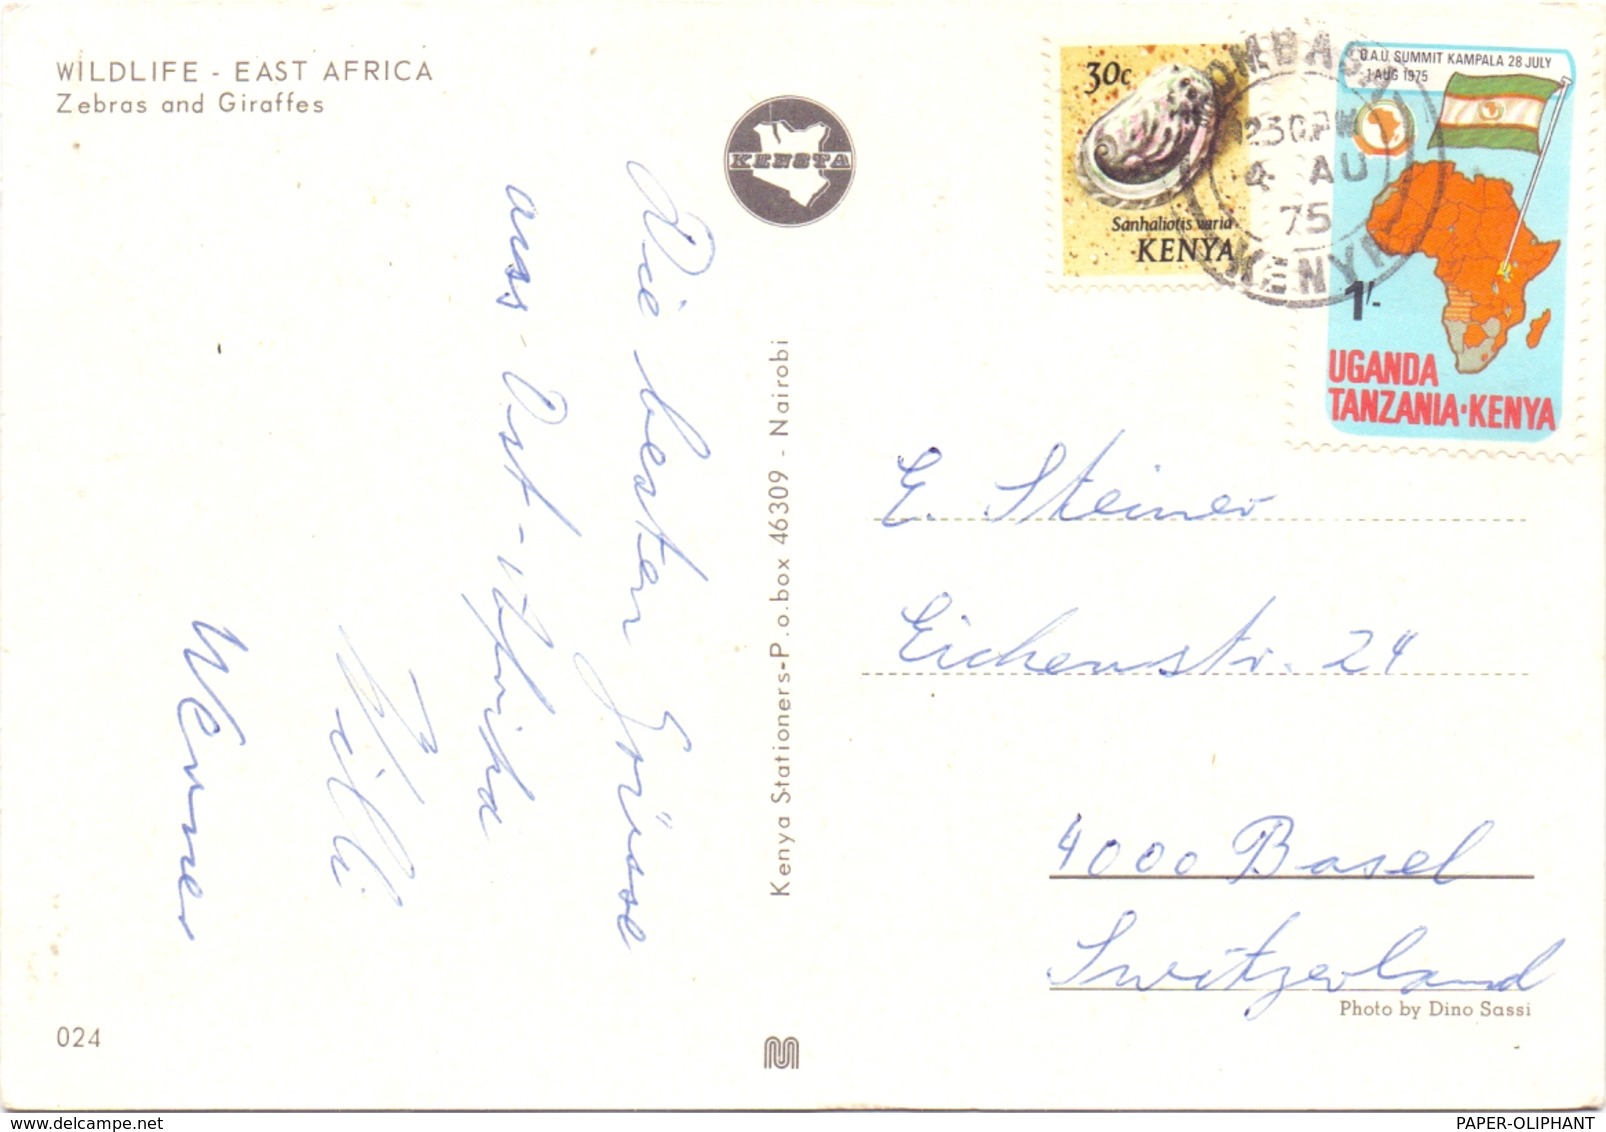 WILDLIFE - EAST AFRICA
Zebras and Giraffes
KENSTA
Die besten Grüsse
aus Ost-Afrika
Willi
Werner
Kenya Stationers-P.o.box 46309 - Nairobi
30c
Sanhaliotis varia
KENYA
MOMBASA
230PM
4 AU
75
KENYA
O.A.U. SUMMIT KAMPALA 28 JULY
1 AUG 1975
1/-
UGANDA
TANZANIA·KENYA
E. Steiner
Eichenstr. 24
4000 Basel
Switzerland
Photo by Dino Sassi
024
www.delcampe.net
PAPER-OLIPHANT